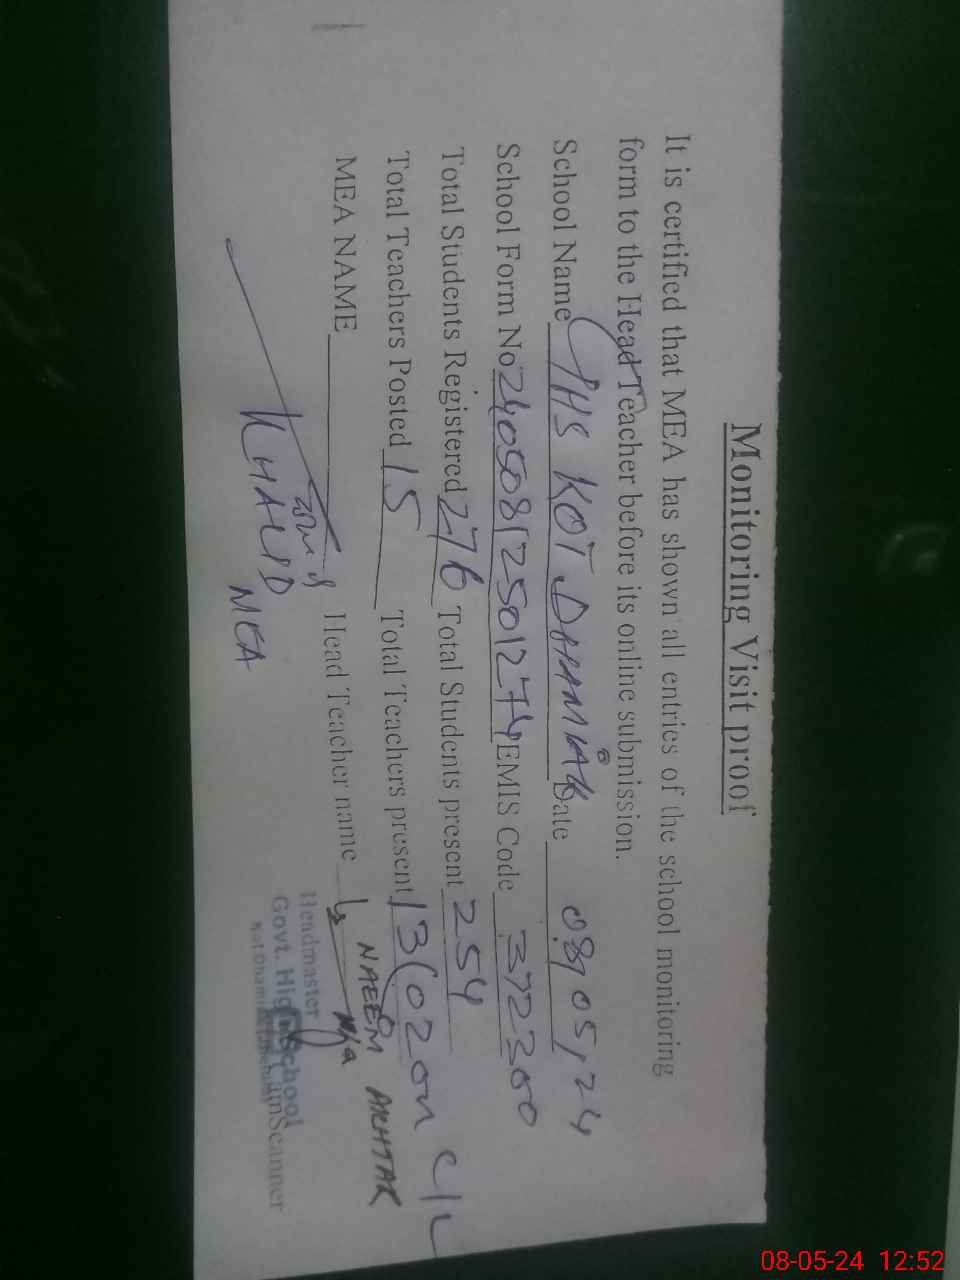 Monitoring Visit proof
It is certified that MEA has shown all entries of the school monitoring
form to the Head Teacher before its online submission.
School Name GHS KOT DHAMIAK Date 08,05,24
School Form No 24050812501274 EMIS Code 372300
Total Students Registered 276 Total Students present 254
Total Teachers Posted 15 Total Teachers present 13 (02 on C/L
MEA NAME Head Teacher name
NAEEM AKHTAR
KHALID
MEA
Headmaster
Govt. High School
Kot Dhamiak
CamScanner
08-05-24 12:52